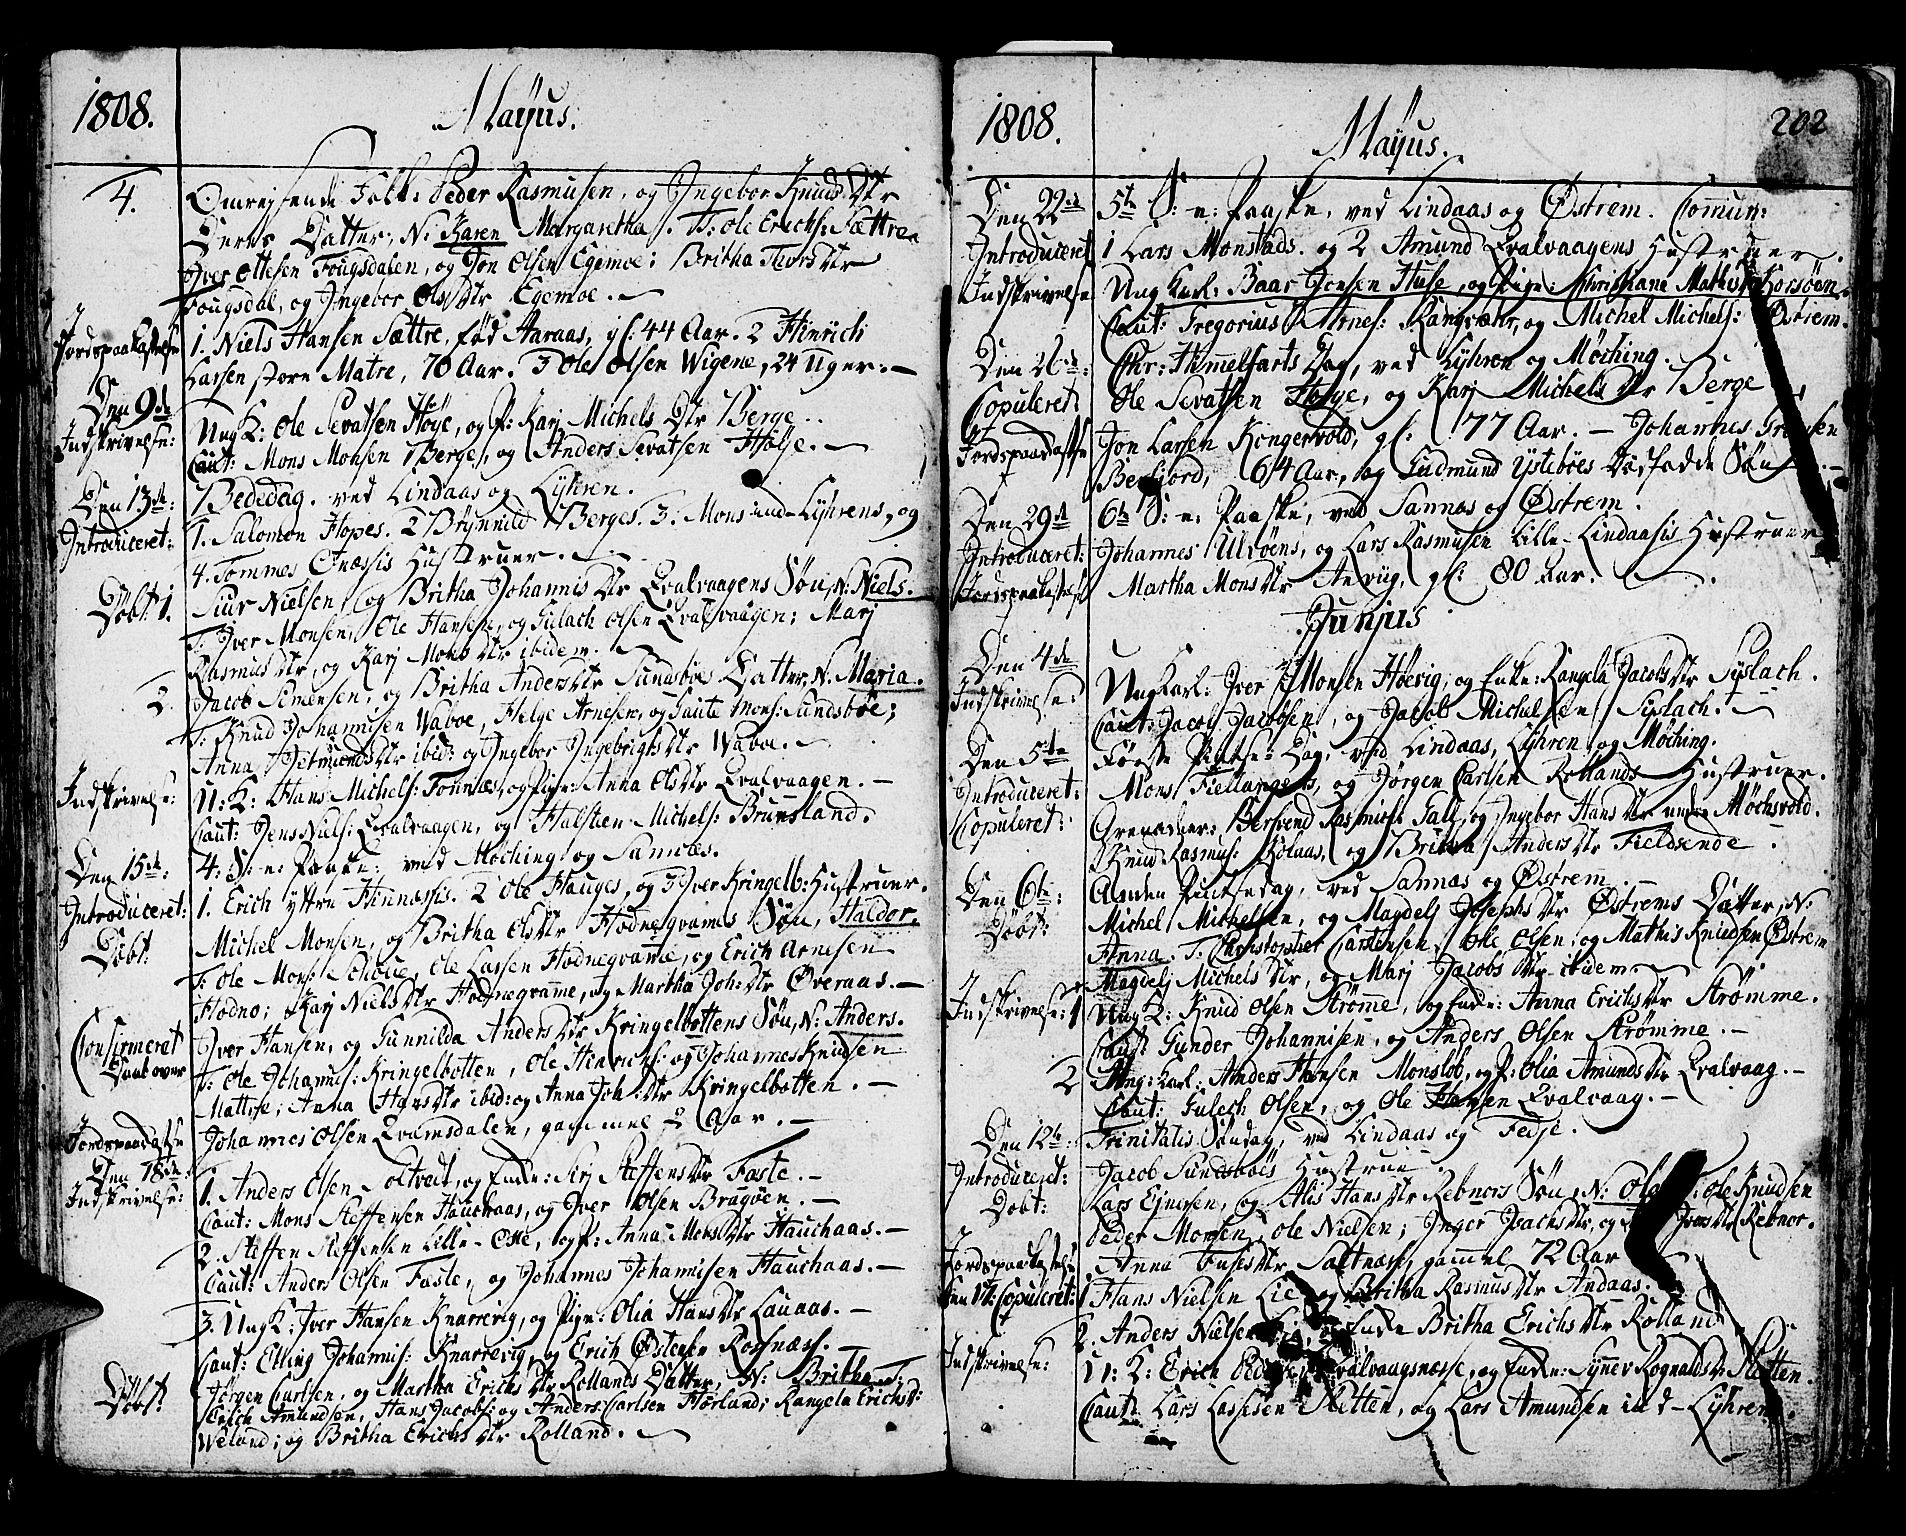 1808. Mayus.
4. Omrejsende Folk: Peder Rasmusen, og Ingebor Knuds Dtr
Deres Datter, N: Karen Margaretha. T: Ole Erichs: Sættre
Iver Ottesen Fougsdalen, og Jon Olsen Egemoe; Britha Thors Dtr
Fougsdal, og Ingebor Ols Dtr Egemoe.
Jordspaakastelse 1. Niels Hansen Sættre, fød Aaraas, gl: 44 Aar. 2 Hinrich
Larsen store Matre, 70 Aar. 3 Ole Olsen Wigene, 24 Uger.
Den 9de
Indskrivelse: Ung K: Ole Sevatsen Høye, og P: Karj Michels Dtr Berge.
Caut: Mons Monsen Berge, og Anders Sevatsen Helje.
Den 13de: Bededag. ved Lindaas og Lyhren.
Introduceret: 1. Salomon Hopes. 2 Brynnild Berges. 3. Mons ind-Lyhrens, og
4. Tommes Onæssis Hustruer.
Døbt 1. Siur Nielsen, og Britha Johannis Dtr Qvalvaagens Søn, N: Niels.
T: Iver Monsen, Ole Hansen, og Gulach Olsen Qvalvaagen; Marj
Rasmus Dtr, og Karj Mons Dtr ibidem.
2. Jacob Simensen, og Britha Anders Dtr Sundsbøe Datter, N: Maria.
T: Knud Johannisen Waboe, Helge Arnesen, og Gaute Mons: Sundsbøe;
Anna Detmunds Dtr ibid: og Ingebor Ingebrigts Dtr Waboe.
Indskrivelse: U: K: Hans Michels: Fonnæs, og Pige: Anna Ols Dtr Qvalvaagen.
Caut: Jens Niels: Qvalvaagen, og Halsten Michels: Brunsland.
Den 15de: 4: S: e: Paaske: ved Møching og Sannæs.
Introduceret: 1. Erich yttre Hinnæssis. 2 Ole Hauges, og 3 Iver Kringelb: Hustruer.
Døbt Michel Monsen, og Britha Ols Dtr Hodnegvames Søn, Haldor.
T: Ole Mons: Schoue, Ole Larsen Hodnegvamme, og Erich Arnesen
Hodno; Karj Niels Dtr Hodnegvamme, og Martha Joh: Dtr Øveraas.
Confirmeret Iver Hansen, og Gunnilda Anders Dtr Kringelbottens Søn, N: Anders.
Daab over T: Ole Johannis: Kringelbotten, Ole Hinrichs: og Johannes Knudsen
Mattre; Anna Hans Dtr ibid: og Anna Joh: Dtr Kringelbotten.
Jordspaakastelse Johannes Olsen Qvamsdalen, gammel 2 Aar.
Den 18de:
Indskrivelse: 1. Anders Olsen Soltvedt, og Enke: Steffens Dtr Faste.
Caut: Mons Steffensen Hauchaas, og Iver Olsen Bragøen.
2. Steffen Steffensen Lille-Oste, og P: Anna Mons Dtr Hauchaas.
Caut: Anders Olsen Faste, og Johannes Johannisen Hauchaas.
3. Ung K: Iver Hansen Knarrevig, og Pige: Olia Hans Dtr Lauaas.
Caut: Elling Johannis: Knarrevig, og Erich Østensen Rossnæss.
Døbt Jørgen Carlsen, og Martha Erichs Dtr Rollands Datter, N: Britha. T:
Erich Amundsen, Hans Jacobs: og Anders Carlsen Hørland; Rangela Erichs D:
Weland; og Britha Erichs Dtr Rolland.
1808. Mayus. 202
Den 22de 5te S: e: Paaske, ved Lindaas og Østrem. Commun:
Introduceret 1 Lars Monstads. og 2 Amund Qvalvaagens Hustruer.
Indskrivelse Ung Karl: Baar Jensen Huse, og Pige: Christiane Mathis Korsøen.
Caut: Gregorius Arnes: Kongsæhr, og Michel Michels: Østrem.
Den 26de: Chr: Himmelfarts Dag, ved Lyhren og Møching.
Copuleret: Ole Sevatsen Helge, og Karj Michels Dtr Berge
Jordspaakastelse Jon Larsen Kongervold, gl: 77 Aar. — Johannes
Berfjord, 64 Aar, og Gudmund Ystebøes Dødfødde Søn.
Den 29de 6te S: e: Paaske, ved Sannas og Østrem.
Introduceret: Johannes Ulvøens, og Lars Rasmusen Lille-Lindaasis Hustruer
Jordspaakastelse Martha Mons Dtr, gl: 80 Aar.
Junjus
Den 4de
Indskrivelse: Ung Karl: Iver Monsen Høevig, og Enke: Rangela Jacobs Dtr Syslach.
Caut: Jacob Jacobsen, og Jacob Michelsen Syslach.
Den 5te Første Pintse-Dag, ved Lindaas, Lyhren og Møching.
Introduceret: Mons Fiellangers, og Jørgen Carlsen Rollands Hustruer.
Copuleret: Grenadeer: Bersvend Rasmusen, og Ingebor Hans Dtr nedre Møchsvold.
Knud Rasmus: Kolaas, og Britha Anders Dtr Fieldsende.
Den 6te: Anden Pintsedag, ved Sannas og Østrem.
Døbt: Michel Michelsen, og Magdelj Josephs Dtr Østrems Datter, N:
Anna. T: Christopher Carstensen, Ole Olsen, og Mathis Knudsen Østrem
Magdelj Michels Dtr, og Marj Jacobs Dtr ibidem.
Indskrivelse: 1 Ung K: Knud Olsen Strømme, og Enke: Anna Erichs Dtr Strømme.
Caut Gunder Johannisen, og Anders Olsen Strømme.
2 Ung: Karl: Anders Hansen Monslob, og P: Olia Amunds Dtr Qvalvaag.
Caut: Gulech Olsen, og Ole Hansen Qvalvaag.
Den 12te: Trinitatis Søndag, ved Lindaas og Fedje.
Introduceret: Jacob Sundsbøes Hustrue.
Døbt: Lars Ejnersen, og Alis Hans Dtr Rebnors Søn, N: Ole Knudsen
Peder Monsen, Ole Nielsen; Inger Isachs Dtr, og Ivers Dtr Rebnor.
Jordspaakastelse Anna Fusis Dtr Saltnæss, gammel 72 Aar
Den 17: Copuleret: 1 Hans Nielsen Lie og Britha Rasmus Dtr Andaas.
2. Anders Nielsen Enke Britha Erichs Dtr Rolland
Indskrivelse: U: K: Erich Qvalvaagsnæsse, og Enke: Synnev Rognalds Dr Sletten.
Caut: Lars Lassesen Sletten, og Lars Amundsen ind-Lyhren.